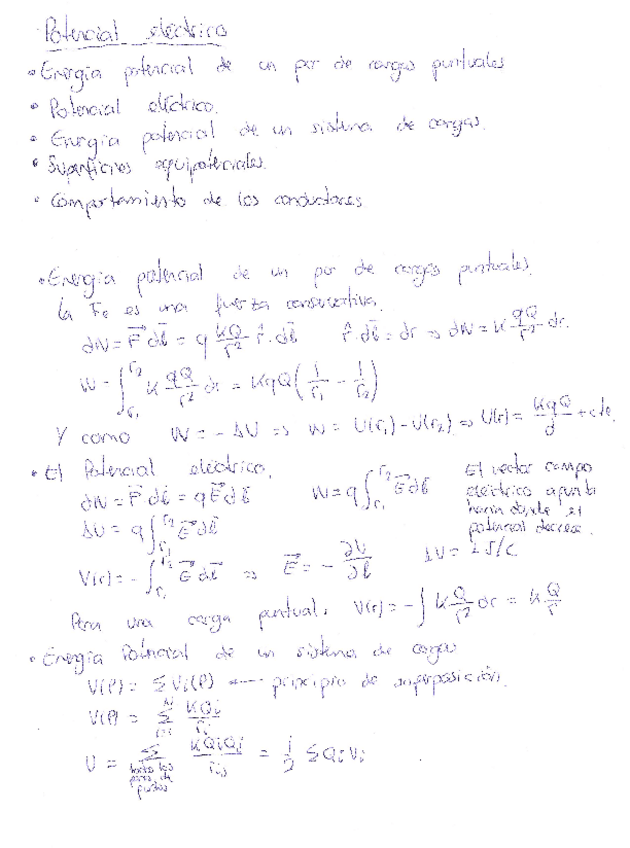 Potencial eléctrico
• Energía potencial de un par de cargas puntuales
• Potencial eléctrico.
• Energía potencial de un sistema de cargas.
• Superficies equipotenciales.
• Comportamiento de los conductores
• Energía potencial de un par de cargas puntuales.
La Fe es una fuerza conservativa.
dW = F⃗ dl⃗ = q KQ/r² r̂ · dl⃗   r̂ · dl⃗ = dr ⇒ dW = K qQ/r² dr.
W = ∫_{r₁}^{r₂} K qQ/r² dr = KqQ (1/r₁ - 1/r₂)
Y como W = - ΔU ⇒ W = U(r₁) - U(r₂) ⇒ U(r) = KqQ/d + cte.
• El Potencial eléctrico.
dW = F⃗ dl⃗ = q E⃗ dl⃗   W = q ∫_{r₁}^{r₂} E⃗ dl⃗   El vector campo eléctrico apunta hacia donde el potencial decrece.
ΔU = q ∫_{r₁}^{r₂} E⃗ dl⃗
V(r) = - ∫_{r₁}^{r₂} E⃗ dl⃗ ⇒ E⃗ = - ∂U/∂l   1V = 1 J/C
Para una carga puntual: V(r) = - ∫ K Q/r² dr = K Q/r
• Energía Potencial de un sistema de cargas
V(P) = Σ Vi(P) ← principio de superposición.
V(P) = Σ_{i=1}^{N} KQi/ri
U = Σ_{todos los pares de puntos} KQiQj/rij = 1/2 Σ Qi Vi